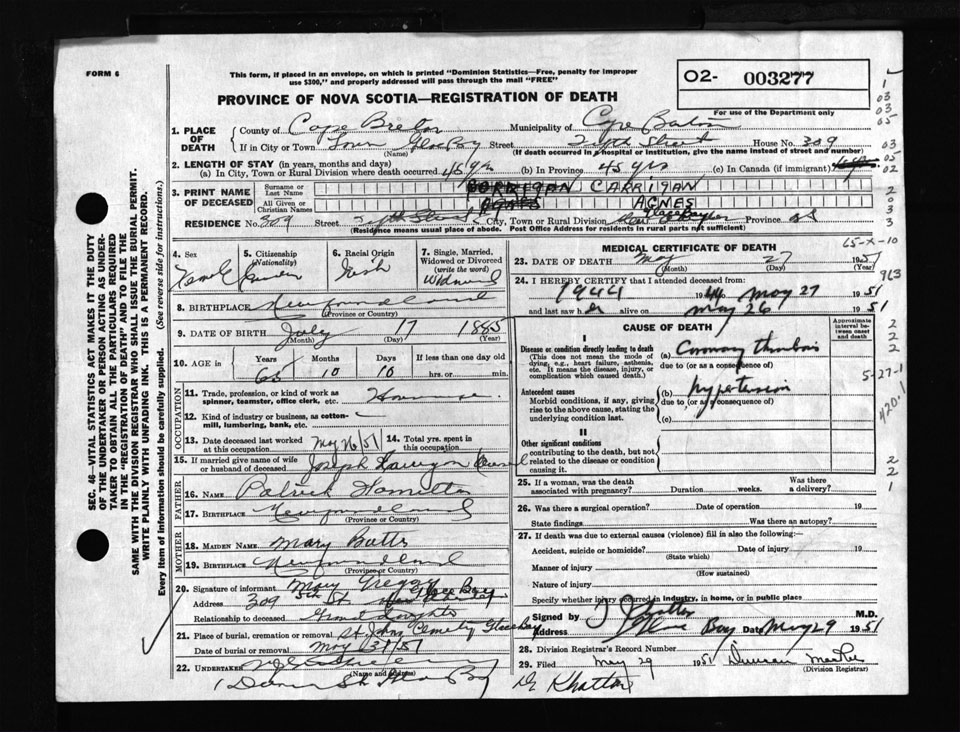 FORM 6
This form, if placed in an envelope, on which is printed "Dominion Statistics—Free, penalty for improper
use $300," and properly addressed will pass through the mail "FREE"
O2- 003277
For use of the Department only
PROVINCE OF NOVA SCOTIA—REGISTRATION OF DEATH
SEC. 46—VITAL STATISTICS ACT MAKES IT THE DUTY
OF THE UNDERTAKER OR PERSON ACTING AS UNDER-
TAKER TO OBTAIN ALL THE PARTICULARS REQUIRED
IN THE "REGISTRATION OF DEATH" AND TO FILE THE
SAME WITH THE DIVISION REGISTRAR WHO SHALL ISSUE THE BURIAL PERMIT.
WRITE PLAINLY WITH UNFADING INK. THIS IS A PERMANENT RECORD.
Every item of Information should be carefully supplied. (See reverse side for instructions.)
1. PLACE OF DEATH County of Cape Breton Municipality of Cape Breton
If in City or Town Town Glace Bay Street House No. 309
(Name) (If death occurred in a hospital or institution, give the name instead of street and number)
2. LENGTH OF STAY (in years, months and days)
(a) In City, Town or Rural Division where death occurred 45 yrs (b) In Province 45 yrs (c) In Canada (if immigrant)
3. PRINT NAME OF DECEASED Surname or Last Name CORRIGAN CARRIGAN
All Given or Christian Names AGNES AGNES
RESIDENCE No. 309 Street City, Town or Rural Division Glace Bay Province NS
(Residence means usual place of abode. Post Office Address for residents in rural parts not sufficient)
4. Sex Female
5. Citizenship (Nationality)
6. Racial Origin Irish
7. Single, Married, Widowed or Divorced (write the word) Widowed
8. BIRTHPLACE Newfoundland
(Province or Country)
9. DATE OF BIRTH July 17 1885
(Month) (Day) (Year)
10. AGE in Years 65 Months 10 Days 10 If less than one day old
hrs. or min.
OCCUPATION
11. Trade, profession, or kind of work as
spinner, teamster, office clerk, etc.
12. Kind of industry or business, as cotton-
mill, lumbering, bank, etc.
13. Date deceased last worked at this occupation May 26/51 14. Total yrs. spent in this occupation
15. If married give name of wife or husband of deceased Joseph
FATHER
16. NAME Patrick Hamilton
17. BIRTHPLACE Newfoundland
(Province or Country)
MOTHER
18. MAIDEN NAME Mary Butts
19. BIRTHPLACE Newfoundland
(Province or Country)
20. Signature of informant Mary
Address 309 5th St. Glace Bay
Relationship to deceased Grand Daughter
21. Place of burial, cremation or removal St. Johns Cemetery Glace Bay
Date of burial or removal May 31/51
22. UNDERTAKER
(Name and address)
MEDICAL CERTIFICATE OF DEATH
65-X-10
23. DATE OF DEATH May 27 1951
(Month) (Day) (Year)
24. I HEREBY CERTIFY that I attended deceased from:
1944 to May 27 1951
and last saw her alive on May 26 1951
CAUSE OF DEATH
Approximate interval between onset and death
I
Disease or condition directly leading to death
(This does not mean the mode of
dying, e.g., heart failure, asthenia,
etc. It means the disease, injury, or
complication which caused death.)
(a) Coronary Thrombosis
due to (or as a consequence of)
Antecedent causes
Morbid conditions, if any, giving
rise to the above cause, stating the
underlying condition last.
(b) hypertension
due to (or as a consequence of)
(c)
5-27-1
420.1
II
Other significant conditions
contributing to the death, but not
related to the disease or condition
causing it.
25. If a woman, was the death associated with pregnancy? Duration weeks. Was there a delivery?
26. Was there a surgical operation? Date of operation 19
State findings Was there an autopsy?
27. If death was due to external causes (violence) fill in also the following:—
Accident, suicide or homicide? Date of injury 19
(State which)
Manner of injury
(How sustained)
Nature of injury
Specify whether injury occurred in industry, in home, or in public place
Signed by M.D.
Address Glace Bay Date May 29 1951
28. Division Registrar's Record Number
29. Filed May 29 1951
(Division Registrar)